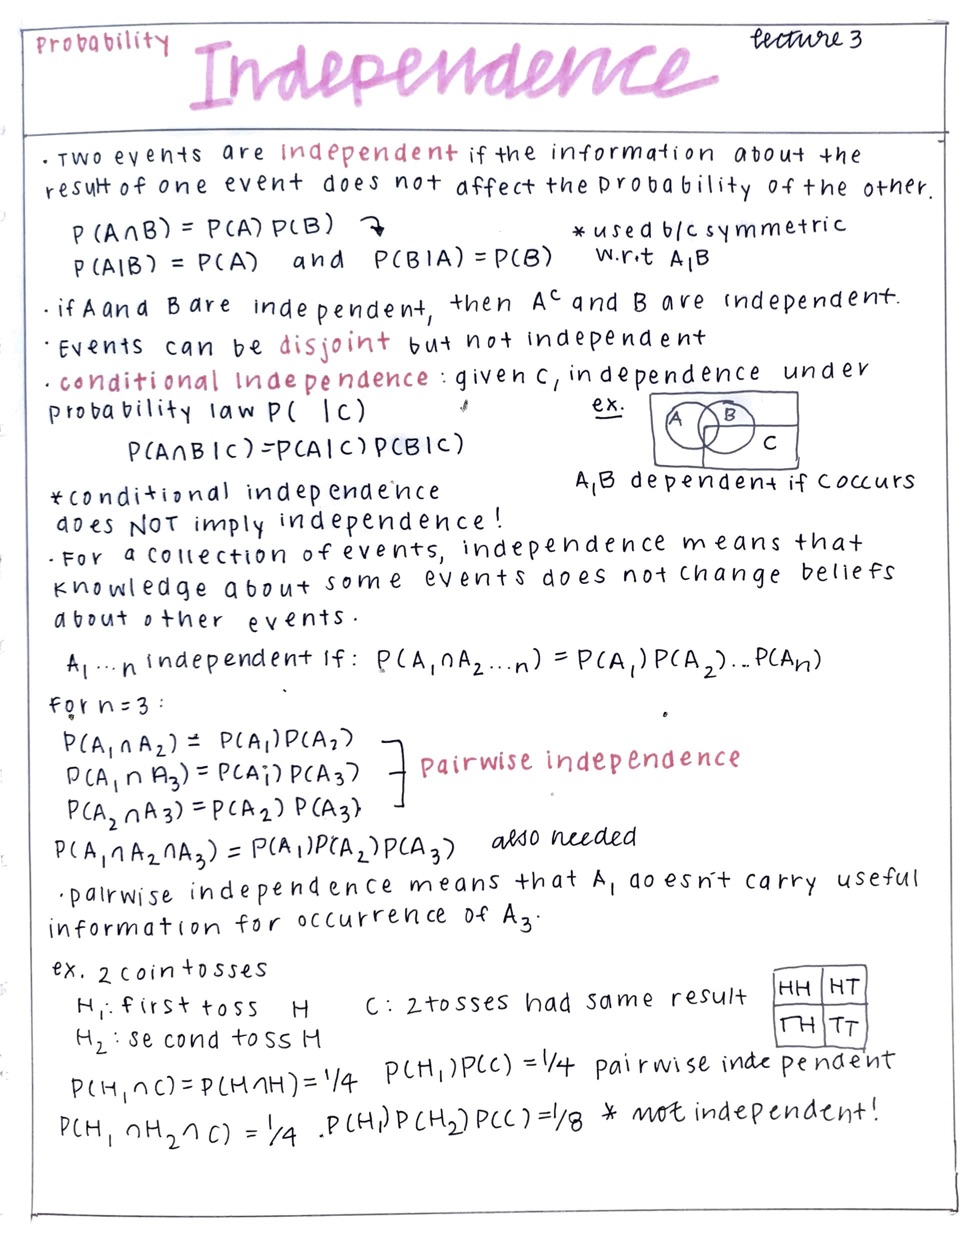 Probability
Independence
lecture 3
· Two events are independent if the information about the
result of one event does not affect the probability of the other.
P(A∩B) = P(A) P(B)
* used b/c symmetric
P(A|B) = P(A) and P(B|A) = P(B)
w.r.t A,B
· if A and B are independent, then Aᶜ and B are independent.
· Events can be disjoint but not independent
· conditional Independence : given C, independence under
probability law P( |C)
ex.
A B
C
P(A∩B|C) = P(A|C) P(B|C)
A,B dependent if C occurs
* conditional independence
does NOT imply independence!
· For a collection of events, independence means that
knowledge about some events does not change beliefs
about other events.
A₁...n independent if: P(A₁∩A₂...n) = P(A₁)P(A₂)...P(Aₙ)
For n=3:
P(A₁∩A₂) = P(A₁)P(A₂)
P(A₁∩A₃) = P(A₁)P(A₃)
pairwise independence
P(A₂∩A₃) = P(A₂)P(A₃)
P(A₁∩A₂∩A₃) = P(A₁)P(A₂)P(A₃) also needed
· pairwise independence means that A₁ doesn't carry useful
information for occurrence of A₃.
ex. 2 coin tosses
H₁: first toss H C: 2 tosses had same result
H₂: second toss H
HH HT
TH TT
P(H₁∩C) = P(H∩H) = 1/4 P(H₁)P(C) = 1/4 pairwise independent
P(H₁∩H₂∩C) = 1/4 . P(H₁)P(H₂)P(C) = 1/8 * not independent!